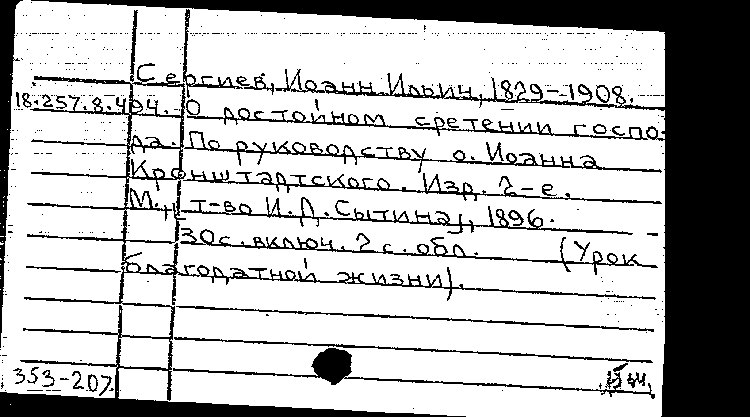 Сергиев, Иоанн Ильич, 1829-1908.
18.257.8.494. О достойном сретении господа. По руководству о. Иоанна
Кронштадтского. Изд. 2-е.
М., т-во И.Д. Сытина, 1896.
30с. включ. 2 с. обл. (Урок
благодатной жизни).
353-207.